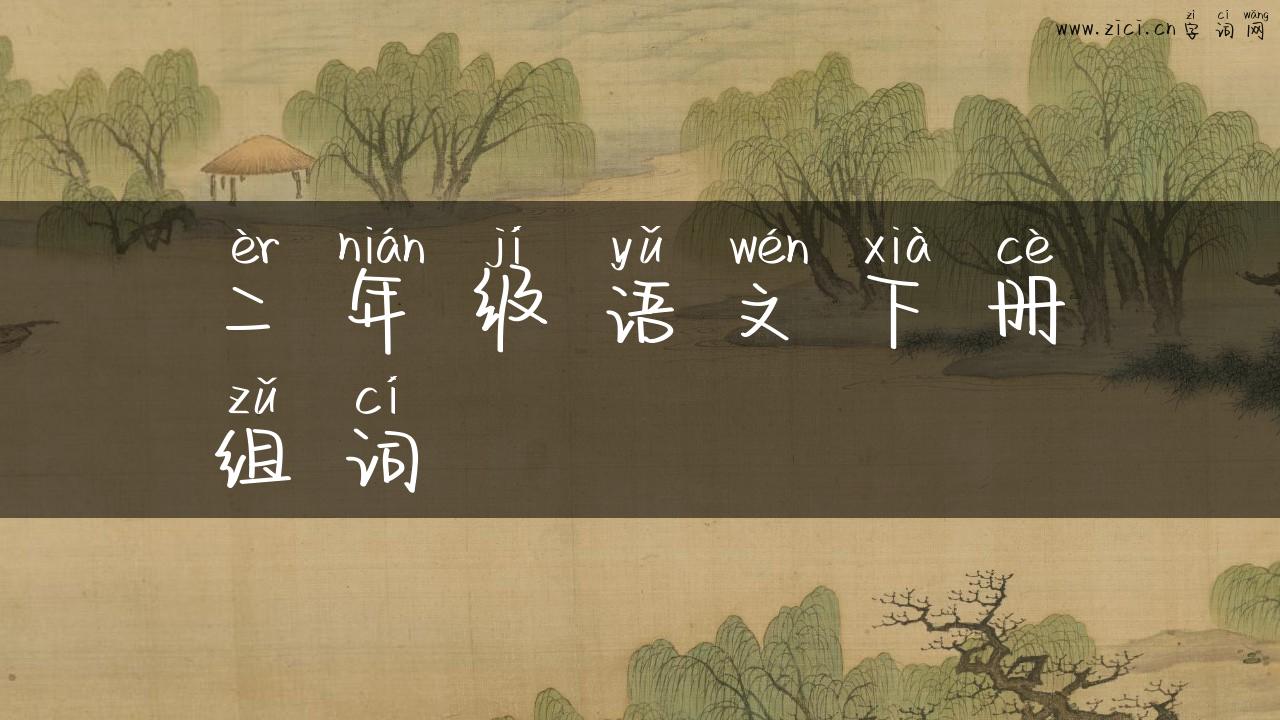 zì cí wǎng
www.zici.cn 字词网
èr nián jí yǔ wén xià cè
二年级语文下册
zǔ cí
组词